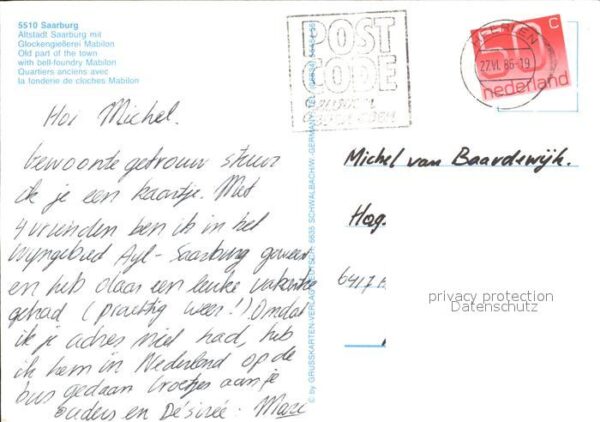 5510 Saarburg
Altstadt Saarburg mit
Glockengießerei Mabilon
Old part of the town
with bell-foundry Mabilon
Quartiers anciens avec
la fonderie de cloches Mabilon
Hoi Michel.
bewoonte getrouw stuur
ik je een kaartje. Met
4 vrienden ben ik in het
wijngebied Ayl-Saarburg geweest
en heb daar een leuke vakantie
gehad (prachtig weer!) Omdat
ik je adres niet had, heb
ik hem in Nederland op de
bus gedaan Groetjes aan je
ouders en Désirée. Marc
© by GRUSSKARTEN-VERLAG 6635 SCHWALBACH/W. GERMANY
POST
CODE
27.VI.86-19
50 C
nederland
Michel van Baardewijk.
Hog.
6417
privacy protection
Datenschutz